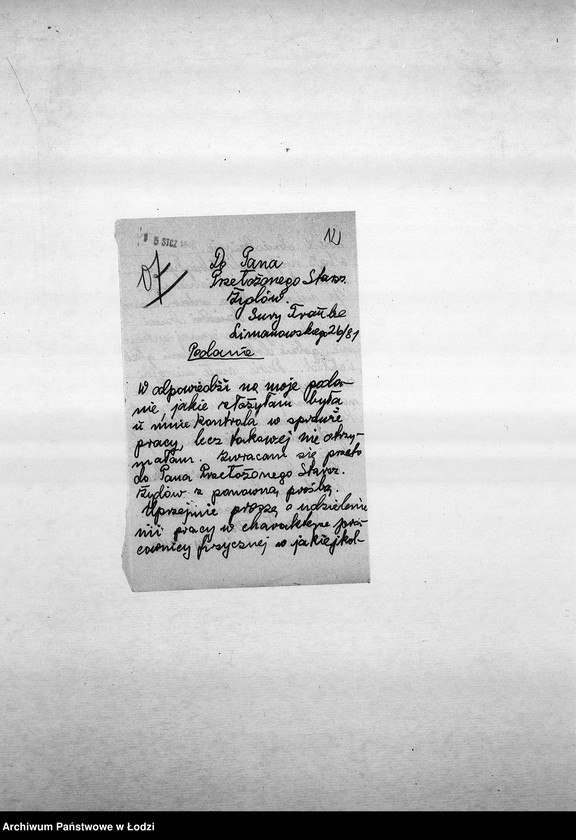 5 STCZ
12
Do Pana
Przełożonego Starsz.
Żydów.
Sury Traube
Limanowskiego 26/81
Podanie
W odpowiedzi na moje poda-
nie, jakie złożyłam była
u mnie kontrola w sprawie
pracy, lecz takowej nie otrzy-
małam. Zwracam się przeto
do Pana Przełożonego Starsz.
Żydów z ponowną prośbą.
Uprzejmie proszę o udzielenie
mi pracy w charakterze pra-
cownicy fizycznej w jakiejkol-
Archiwum Państwowe w Łodzi